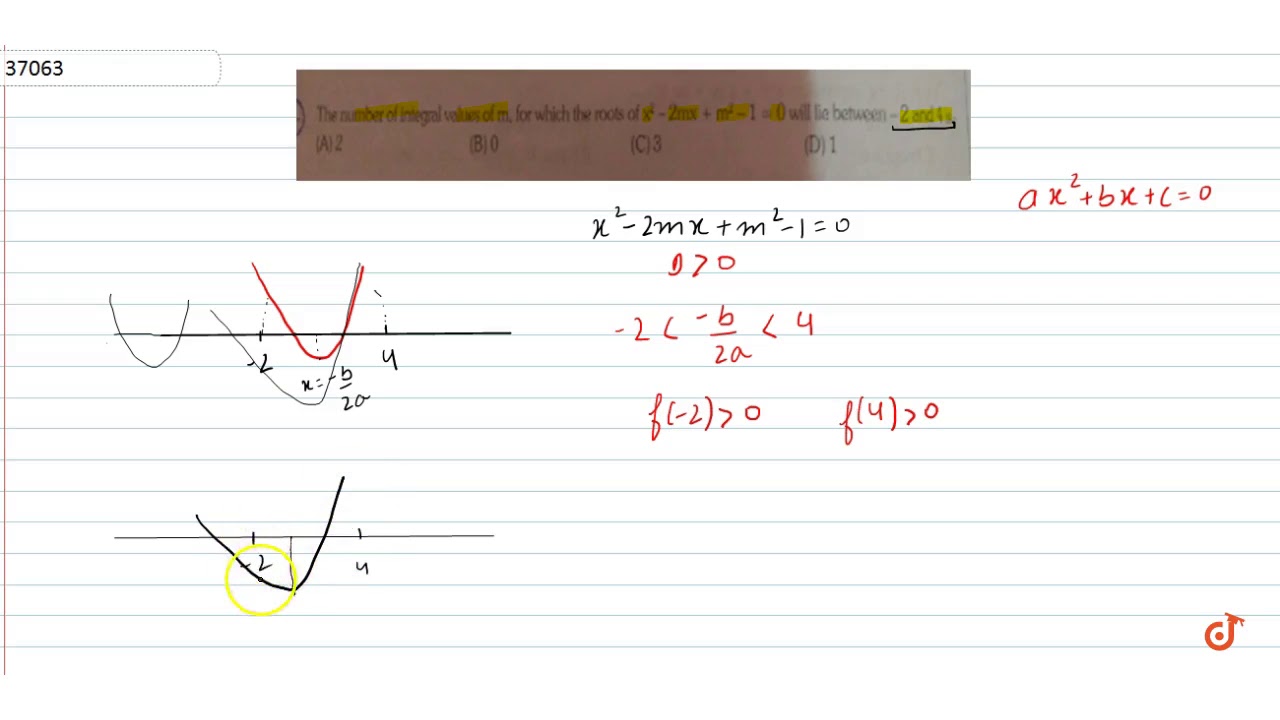 37063
The number of integral values of m, for which the roots of x² - 2mx + m² - 1 = 0 will lie between - 2 and 4 is
(A) 2 (B) 0 (C) 3 (D) 1
ax²+bx+c=0
x²-2mx+m²-1=0
D>0
-2 < -b/2a < 4
-2 4
x = -b/2a
f(-2)>0 f(4)>0
-2 4